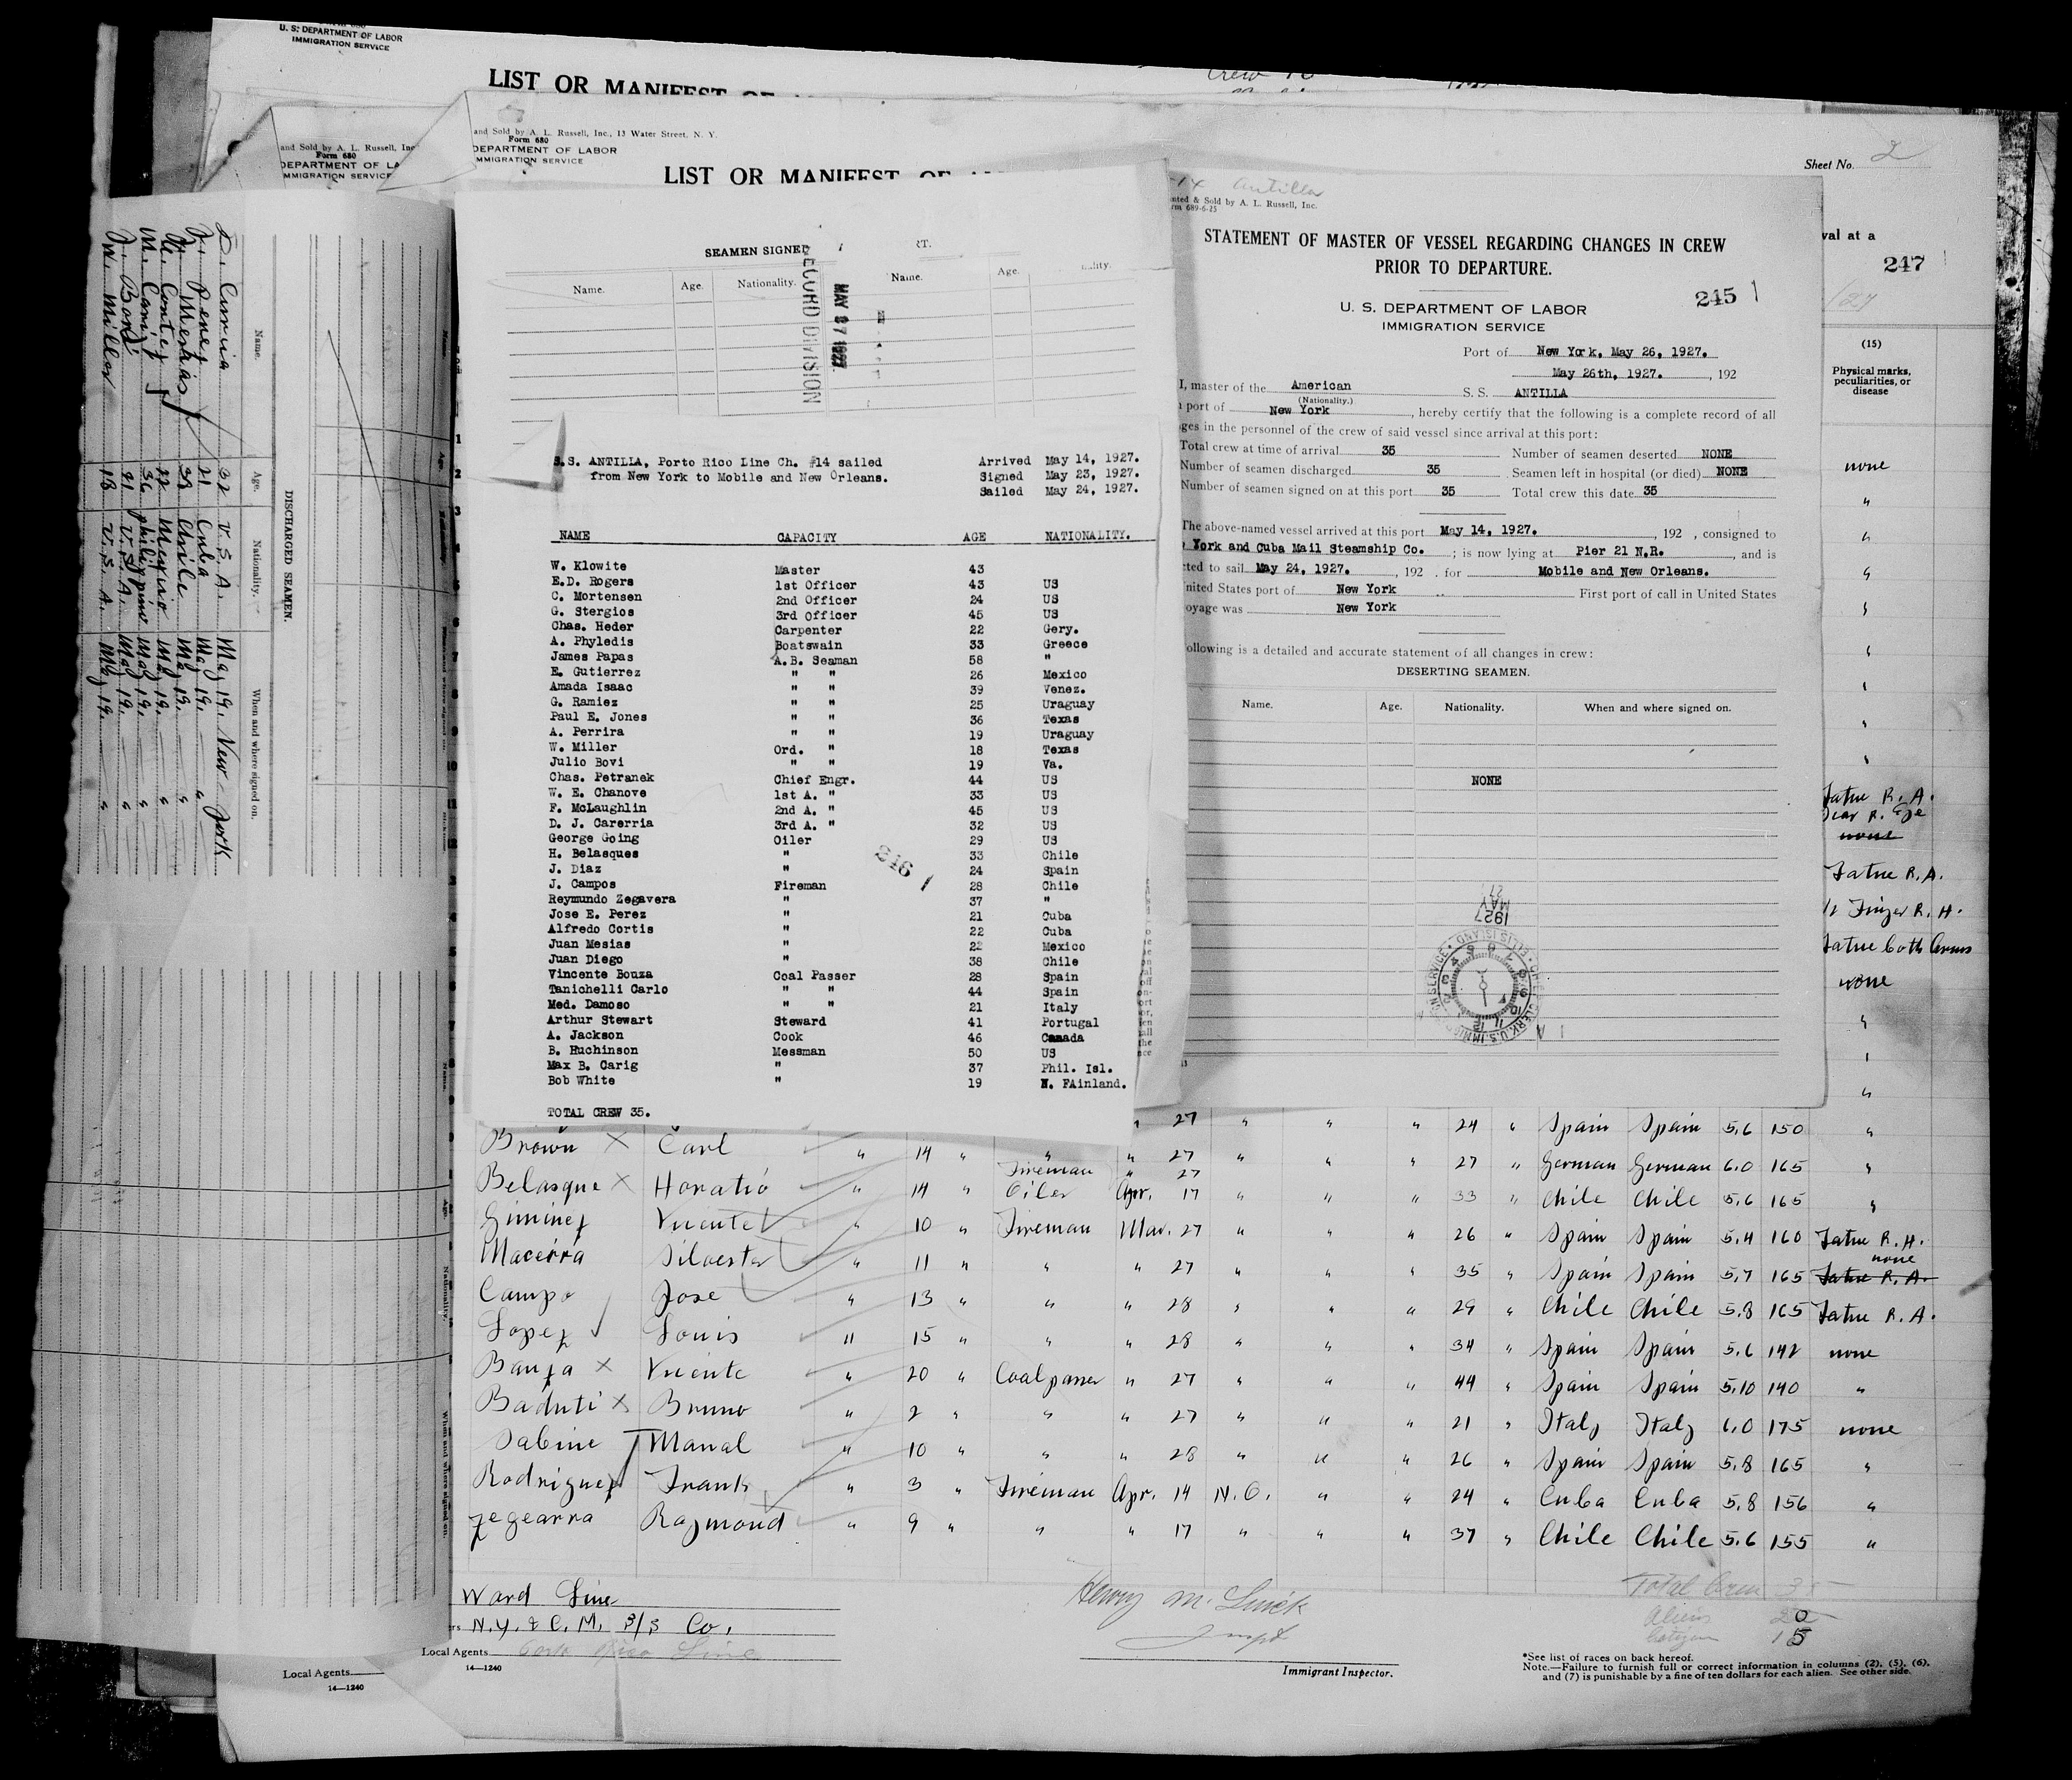 U. S. DEPARTMENT OF LABOR
IMMIGRATION SERVICE
LIST OR MANIFEST OF
Crew
and Sold by A. L. Russell, Inc
Form 680
DEPARTMENT OF LA
MMIGRATION SERVICE
and Sold by A. L. Russell, Inc., 13 Water Street, N. Y.
Form 680
DEPARTMENT OF LABOR
MMIGRATION SERVICE
LIST OR MANIFEST OF
Sheet No. 2
val at a
247
(15)
Physical marks,
peculiarities, or
disease
DISCHARGED SEAMEN.
Name. Age. Nationality. When and where signed on.
D. Curria 32 U.S.A. May 19. New York
J. Perez 21 Cuba May 19. "
J. Mesias 38 Chile May 19. "
A. Cortez 22 Mexico May 19. "
M. Carig 36 philippino May 19. "
J. Bovi 21 U.S.A. May 19. "
W. Miller 18 U.S.A. May 19. "
SEAMEN SIGNED
RT.
Name. Age. Nationality. Name. Age. ality.
RECORD DIVISION
MAY 27 1927
S.S. ANTILLA, Porto Rico Line Ch. #14 sailed
from New York to Mobile and New Orleans.
Arrived May 14, 1927.
Signed May 23, 1927.
Sailed May 24, 1927.
NAME CAPACITY AGE NATIONALITY.
W. Klowite Master 43
E.D. Rogers 1st Officer 43 US
C. Mortensen 2nd Officer 24 US
G. Stergios 3rd Officer 45 US
Chas. Heder Carpenter 22 Gery.
A. Phyledis Boatswain 33 Greece
James Papas A.B. Seaman 58 "
E. Gutierrez " " 26 Mexico
Amada Isaac " " 39 Venez.
G. Ramiez " " 25 Uraguay
Paul E. Jones " " 36 Texas
A. Perrira " " 19 Uraguay
W. Miller Ord. " 18 Texas
Julio Bovi " " 19 Va.
Chas. Petranek Chief Engr. 44 US
W. E. Chanove 1st A. " 33 US
F. McLaughlin 2nd A. " 45 US
D. J. Carerria 3rd A. " 32 US
George Going Oiler 29 US
H. Belasques " 33 Chile
J. Diaz " 24 Spain
J. Campos Fireman 28 Chile
Reymundo Zegavera " 37 "
Jose E. Perez " 21 Cuba
Alfredo Cortis " 22 Cuba
Juan Mesias " 22 Mexico
Juan Diego " 38 Chile
Vincente Bouza Coal Passer 28 Spain
Tanichelli Carlo " " 44 Spain
Med. Damoso " " 21 Italy
Arthur Stewart Steward 41 Portugal
A. Jackson Cook 46 Canada
B. Huchinson Messman 50 US
Max B. Carig " 37 Phil. Isl.
Bob White " 19 N. FAinland.
TOTAL CREW 35.
246
Antilla
nted & Sold by A. L. Russell, Inc.
rm 689-6-25
STATEMENT OF MASTER OF VESSEL REGARDING CHANGES IN CREW
PRIOR TO DEPARTURE.
245
U. S. DEPARTMENT OF LABOR
IMMIGRATION SERVICE
Port of New York, May 26, 1927.
May 26th, 1927. , 192
I, master of the American S. S. ANTILLA
(Nationality.)
port of New York , hereby certify that the following is a complete record of all
ges in the personnel of the crew of said vessel since arrival at this port:
Total crew at time of arrival 35 Number of seamen deserted NONE
Number of seamen discharged 35 Seamen left in hospital (or died) NONE
Number of seamen signed on at this port 35 Total crew this date 35
The above-named vessel arrived at this port May 14, 1927. , 192 , consigned to
York and Cuba Mail Steamship Co. ; is now lying at Pier 21 N.R. , and is
cted to sail May 24, 1927. , 192 . for Mobile and New Orleans.
nited States port of New York First port of call in United States
oyage was New York
ollowing is a detailed and accurate statement of all changes in crew:
DESERTING SEAMEN.
Name. Age. Nationality. When and where signed on.
NONE
1927
MAY
27
none
"
Tatue R. A.
Scar R. Eye
none
Tatue R. A.
Finger R. H.
Tatue both Arms
none
" 27 " " " 24 " Spain Spain 5.6 150 "
Brown X Carl " 14 " " " 27 " " " 27 " German German 6.0 165 "
Fireman " 27
Belasque X Horatio " 14 " Oiler Apr. 17 " " " 33 " Chile Chile 5.6 165 "
Giminez Vicente " 10 " Fireman Mar. 27 " " " 26 " Spain Spain 5.4 160 Tatue R. H.
none
Macerra Silvester " 11 " " " 27 " " " 35 " Spain Spain 5.7 165 Tatue R. A.
Campo Jose " 13 " " " 28 " " " 29 " Chile Chile 5.8 165 Tatue R. A.
Lopez Louis " 15 " " " 28 " " " 34 " Spain Spain 5.6 142 none
Bauza X Vicente " 20 " Coalpasser " 27 " " " 44 " Spain Spain 5.10 140 "
Baduti X Bruno " 2 " " " 27 " " " 21 " Italy Italy 6.0 175 none
Sabine Manal " 10 " " " 28 " " " 26 " Spain Spain 5.8 165 "
Rodriguez Frank " 3 " Fireman Apr. 14 N.O. " " 24 " Cuba Cuba 5.8 156 "
Zegearra Raymond " 9 " " " 17 " " " 37 " Chile Chile 5.6 155 "
Total Crew 35
Aliens 20
Citizen 15
Ward Line
rs N.Y. & C. M. S/S Co.
Local Agents Porto Rico Line
14—1240
Henry M. Quick
Inspt
Immigrant Inspector.
*See list of races on back hereof.
Note.—Failure to furnish full or correct information in columns (2), (5), (6),
and (7) is punishable by a fine of ten dollars for each alien. See other side.
Local Agents
14—1240